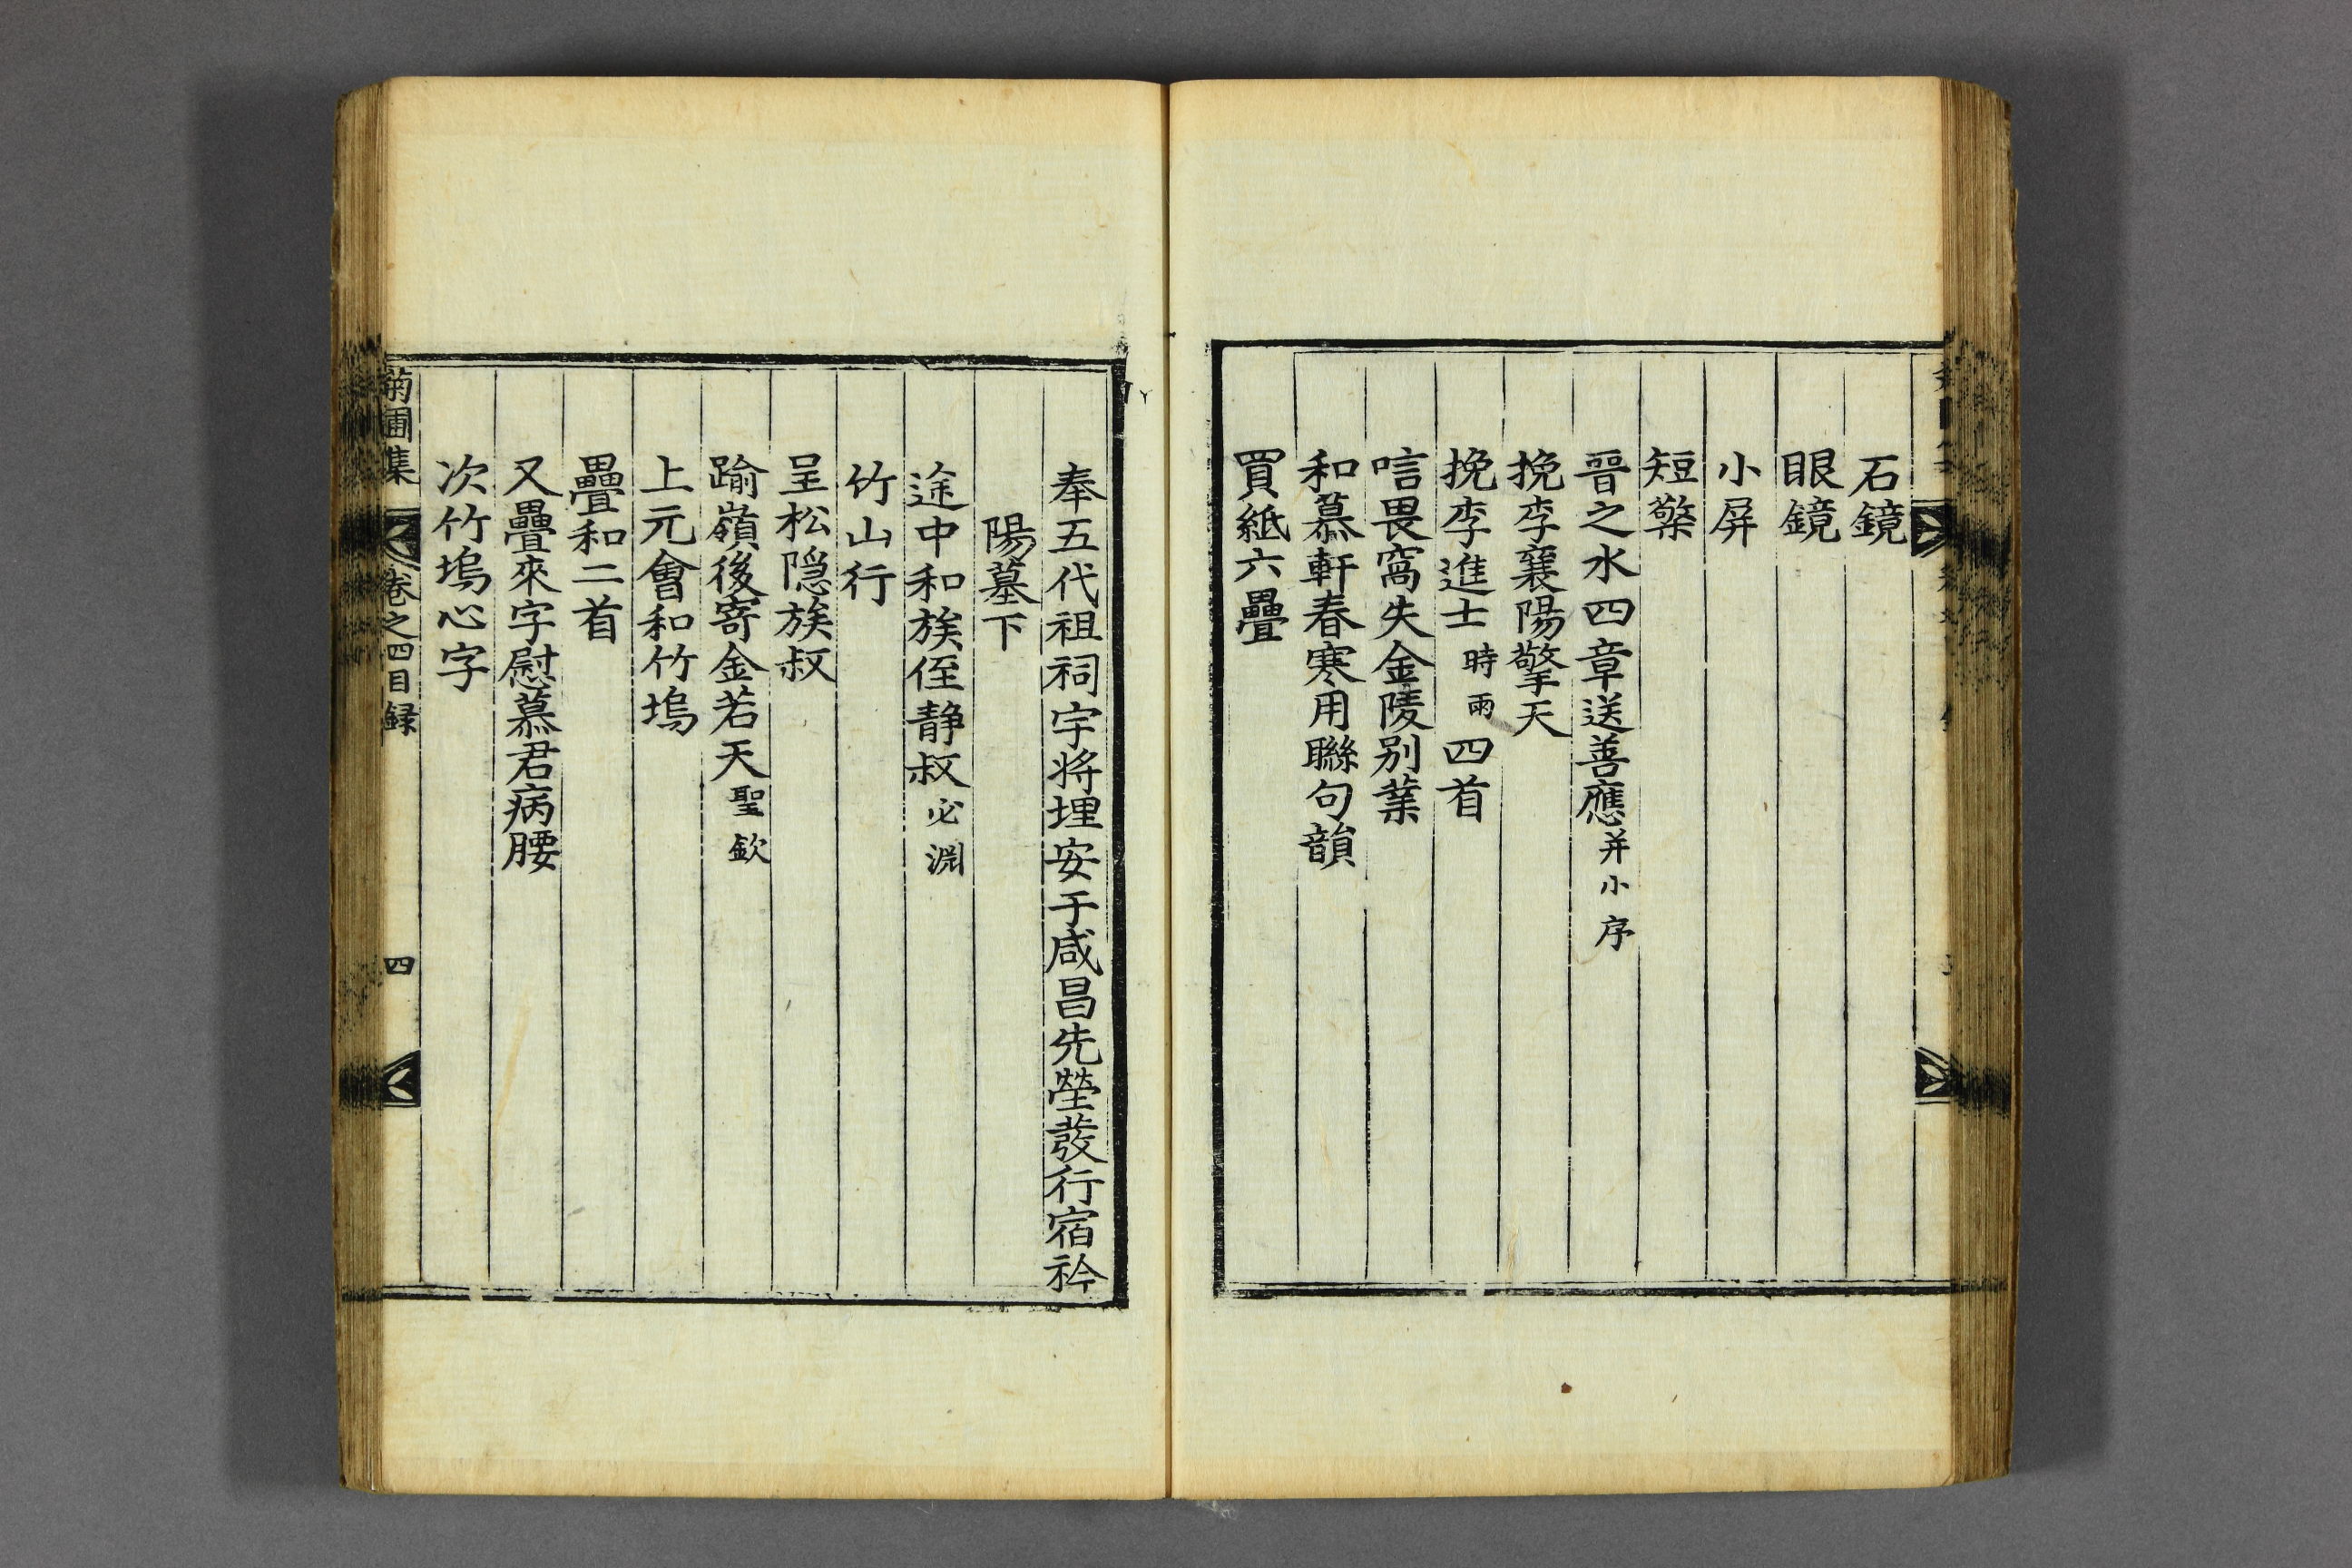 石鏡
眼鏡
小屏
短檠
晉之水四章送善應并小序
挽李襄陽擎天
挽李進士時雨四首
唁畏窩失金陵别業
和慕軒春寒用聯句韻
買紙六疊
奉五代祖祠宇將埋安于咸昌先塋發行宿衿
陽墓下
途中和族侄静叔必淵
竹山行
呈松隠族叔
踰嶺後寄金若天聖欽
上元會和竹塢
疊和二首
又疊來字慰慕君病腰
次竹塢心字
菊圃集 卷之四目録 四